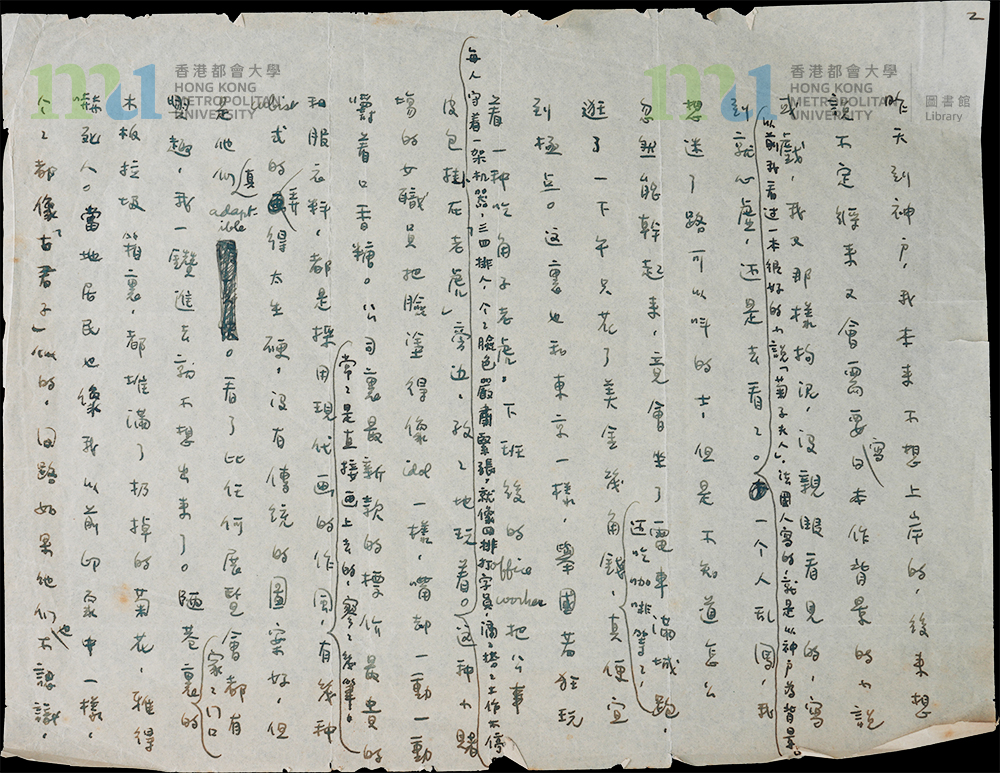 2
香港都會大學
HONG KONG
METROPOLITAN
UNIVERSITY
香港都會大學
HONG KONG
METROPOLITAN
UNIVERSITY
圖書館
Library
昨天到神戶,我本來不想上岸的,後來想
說不定將來又會需要寫日本作背景的小說
或戲,我又那樣拘泥,沒親眼看見的,寫
以前我看过一本很好的小說「菊子夫人」,法國人寫的,就是以神戶為背景。
到就心虛,还是去看看。一个人乱闯,我
想迷了路可以叫的士,但是不知道怎么
忽然能幹起来,竟會坐了電車滿城跑,
还吃咖啡等等,
逛了一下午只花了美金幾角錢,真便宜
到極点。這裏也和東京一樣,舉國若狂玩
着一种吃角子老虎。下班後的office worker把公事
每人守着一架机器,三四排人,个个臉色嚴肅緊張,就像四排打字員,滴滴搭搭工作不停
皮包掛在「老虎」旁边,孜孜地玩着。這种小賭
場的女職員把臉塗得像idol一樣,嘴却一動一動
嚼着口香糖。公司裏最新款的標價最貴的
常常是直接画上去的,寥寥幾筆。
和服衣料,都是採用現代画的作風,有幾种
cubist式的弄得太生硬,沒有傳統的圖案好,但
是他們真adaptible。看了比任何展覽會都有
興趣,我一鑽進去就不想出来了。陋巷裏的
家家門口
木板垃圾箱裏,都堆滿了扔掉的菊花,雅得
死人。當地居民也像我以前印象中一樣,
个个都像「古君子」似的,问路如果他們也不認識,